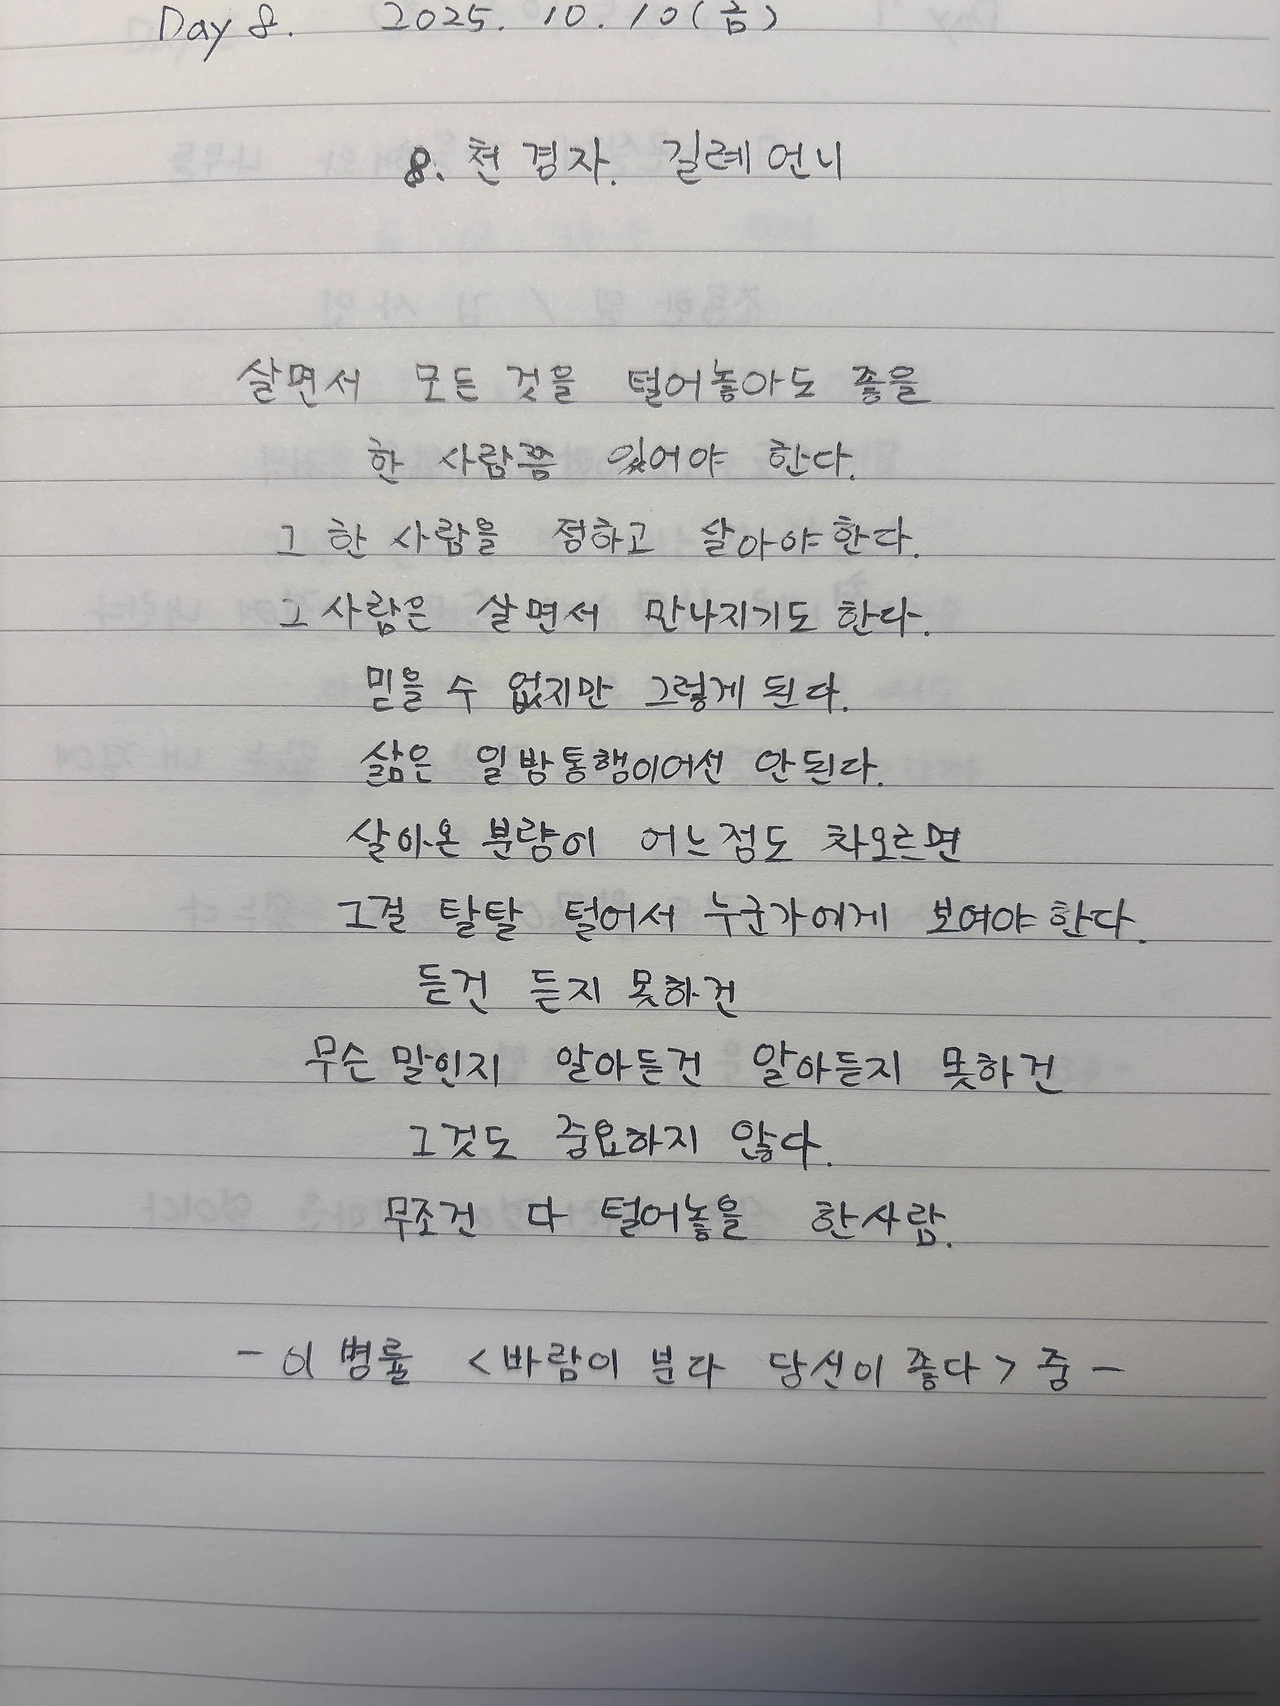 Day 8. 2025. 10. 10(금)
8. 천경자. 길례언니
살면서 모든 것을 털어놓아도 좋을
한 사람쯤 있어야 한다.
그 한 사람을 정하고 살아야한다.
그 사람은 살면서 만나지기도 한다.
믿을 수 없지만 그렇게 된다.
삶은 일방통행이어선 안된다.
살아온 분량이 어느정도 차오르면
그걸 탈탈 털어서 누군가에게 보여야한다.
듣건 듣지 못하건
무슨 말인지 알아듣건 알아듣지 못하건
그것도 중요하지 않다.
무조건 다 털어놓을 한사람.
- 이병률 <바람이 분다 당신이 좋다> 중 -